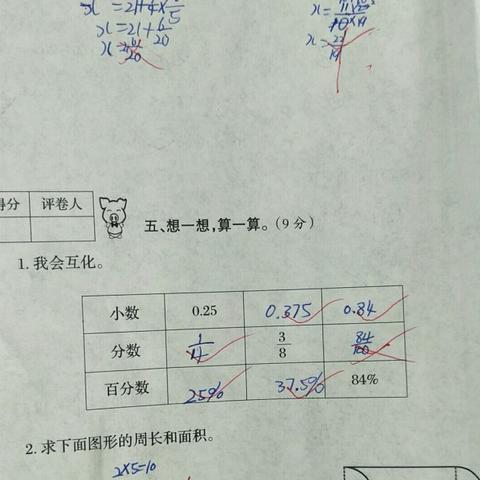 x = 21+4×6/5
x = 21+6/20
x = 11/10
x = 22/19
得分 评卷人
五、想一想,算一算。(9分)
1.我会互化。
小数 0.25 0.375 0.84
分数 1/4 3/8 84/100
百分数 25% 37.5% 84%
2.求下面图形的周长和面积。
2×5=10